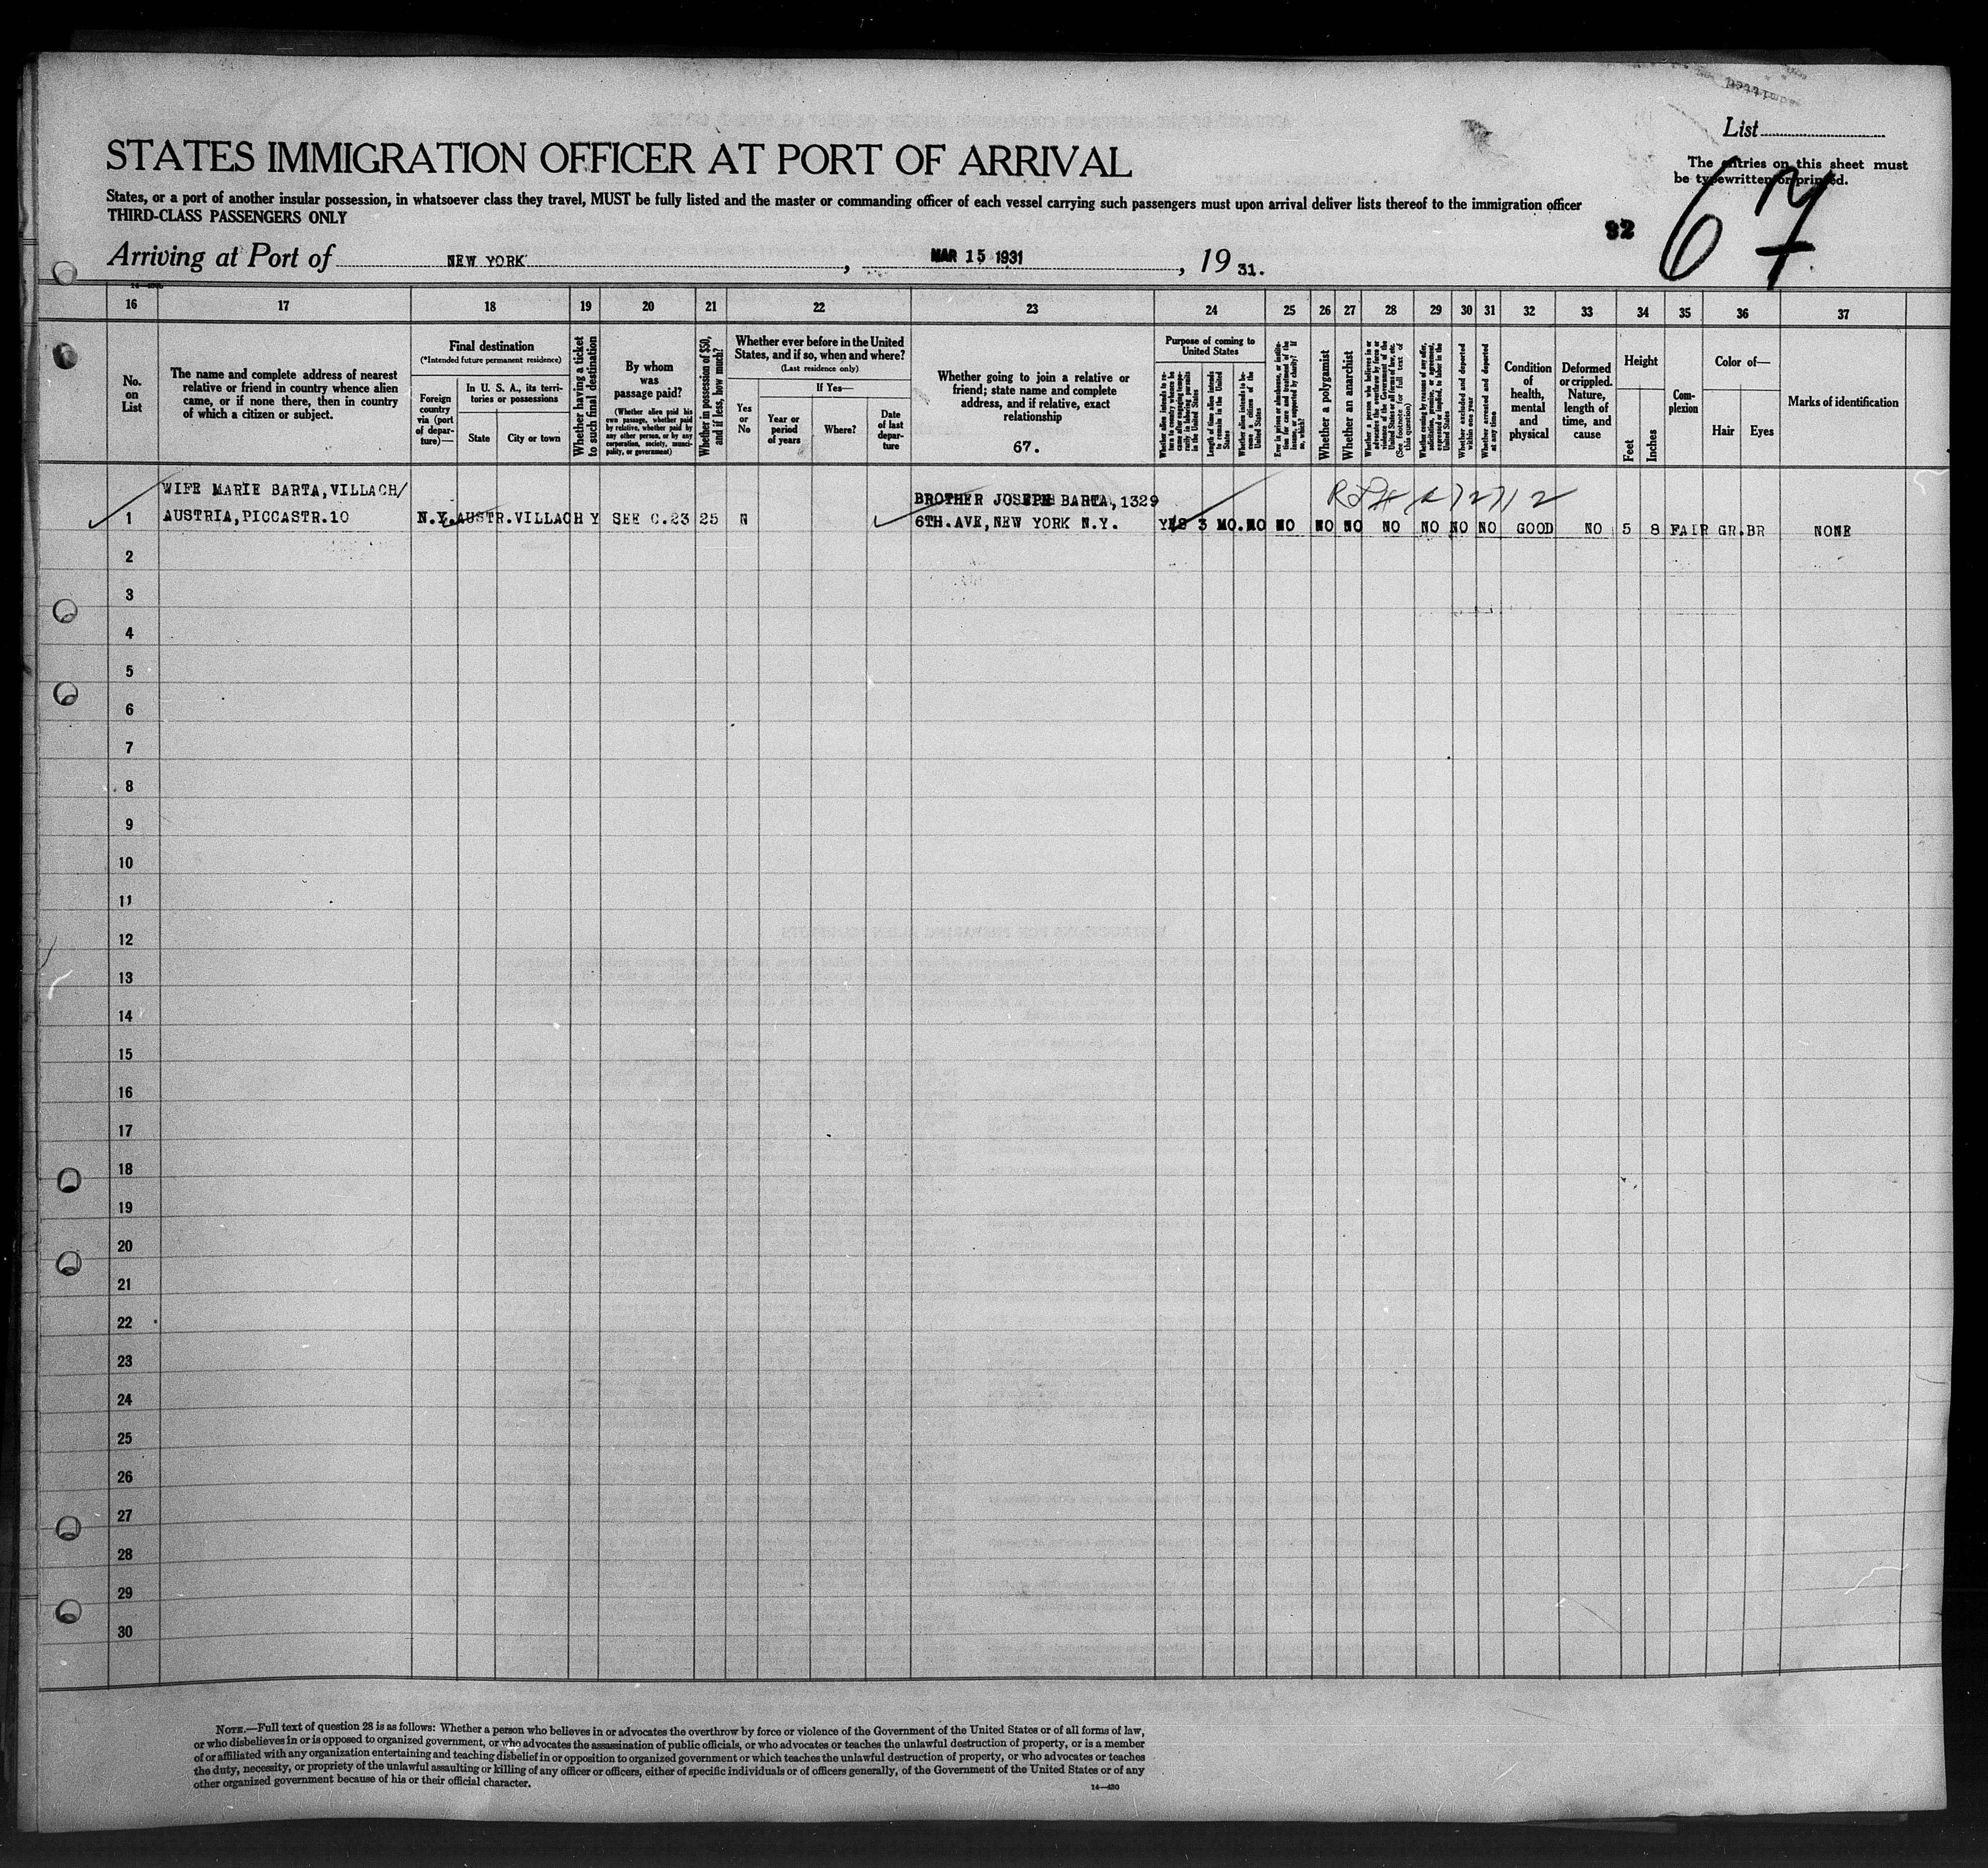 List
STATES IMMIGRATION OFFICER AT PORT OF ARRIVAL
The entries on this sheet must
be typewritten or printed.
States, or a port of another insular possession, in whatsoever class they travel, MUST be fully listed and the master or commanding officer of each vessel carrying such passengers must upon arrival deliver lists thereof to the immigration officer
THIRD-CLASS PASSENGERS ONLY
92
67
Arriving at Port of NEW YORK, MAR 15 1931, 19 31.
16 17 18 19 20 21 22 23 24 25 26 27 28 29 30 31 32 33 34 35 36 37
No.
on
List
The name and complete address of nearest
relative or friend in country whence alien
came, or if none there, then in country
of which a citizen or subject.
Final destination
(*Intended future permanent residence)
Foreign
country
via (port
of depar-
ture)—
In U. S. A., its terri-
tories or possessions
State
City or town
Whether having a ticket
to such final destination
By whom
was
passage paid?
(Whether alien paid his
own passage, whether paid
by relative, whether paid by
any other person, or by any
corporation, society, munici-
pality, or government)
Whether in possession of $50,
and if less, how much?
Whether ever before in the United
States, and if so, when and where?
(Last residence only)
Yes
or
No
If Yes—
Year or
period
of years
Where?
Date
of last
depar-
ture
Whether going to join a relative or
friend; state name and complete
address, and if relative, exact
relationship
67.
Purpose of coming to
United States
Whether alien intends to re-
turn to country whence he
came after engaging tempo-
rarily in laboring pursuits
in the United States
Length of time alien intends
to remain in the United
States
Whether alien intends to be-
come a citizen of the
United States
Ever in prison or almshouse, or institu-
tion for care and treatment of the
insane, or supported by charity? If
so, which?
Whether a polygamist
Whether an anarchist
Whether a person who believes in or
advocates the overthrow by force or
violence of the Government of the
United States or all forms of law, etc.
(See footnote for full text of
this question)
Whether coming by reasons of any offer,
solicitation, promise, or agreement,
expressed or implied, to labor in the
United States
Whether excluded and deported
within one year
Whether arrested and deported
at any time
Condition
of
health,
mental
and
physical
Deformed
or crippled.
Nature,
length of
time, and
cause
Height
Feet
Inches
Com-
plexion
Color of—
Hair
Eyes
Marks of identification
WIFE MARIE BARTA, VILLACH/
BROTHER JOSEPH BARTA, 1329
1 AUSTRIA, PICCASTR.10 N.Y. AUSTR. VILLACH Y SEE C.23 25 N 6TH. AVE, NEW YORK N.Y. YES 3 MO. NO NO NO NO NO NO NO NO GOOD NO 5 8 FAIR GR. BR NONE
2
3
4
5
6
7
8
9
10
11
12
13
14
15
16
17
18
19
20
21
22
23
24
25
26
27
28
29
30
NOTE.—Full text of question 28 is as follows: Whether a person who believes in or advocates the overthrow by force or violence of the Government of the United States or of all forms of law,
or who disbelieves in or is opposed to organized government, or who advocates the assassination of public officials, or who advocates or teaches the unlawful destruction of property, or is a member
of or affiliated with any organization entertaining and teaching disbelief in or opposition to organized government or which teaches the unlawful destruction of property, or who advocates or teaches
the duty, necessity, or propriety of the unlawful assaulting or killing of any officer or officers, either of specific individuals or of officers generally, of the Government of the United States or of any
other organized government because of his or their official character.
14—430